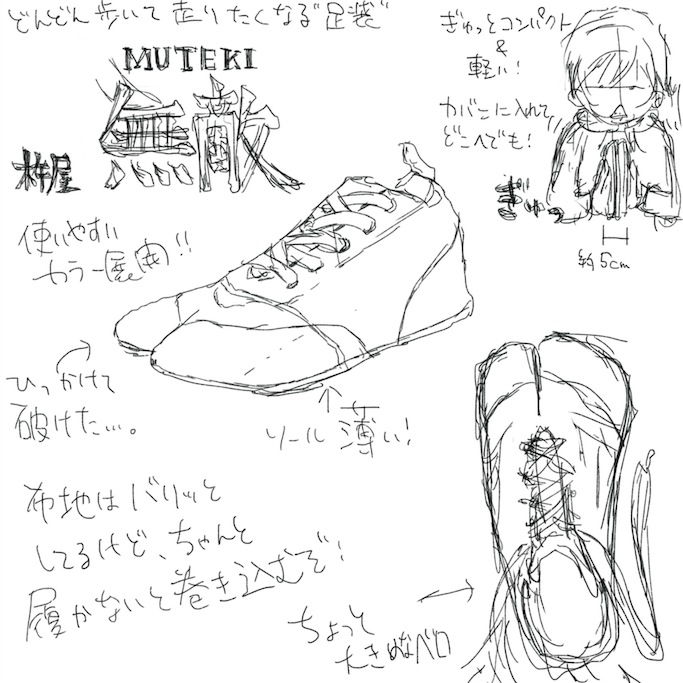 どんどん歩いて走りたくなる"足装"
MUTEKI
無敵
杵屋
ぎゅっとコンパクト
&
軽い!
カバンに入れて
どこへでも!
ぎゅっ
約5cm
使いやすい
カラー展開!!
ひっかけて
破けた…。
ソール薄い!
布地はバリッと
してるけど、ちゃんと
履かないと巻き込むぞ!
ちょっと
大きめなベロ